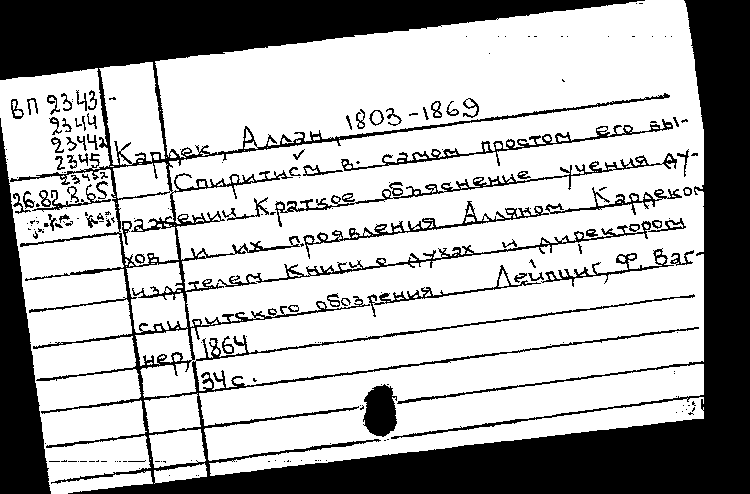 ВП 2343-
2344
2344а
2345
Кардек, Аллан, 1803-1869
2345а
36.82.8.65.
Спиритисм в самом простом его вы-
ражении. Краткое объяснение учения ду-
хов и их проявления Алляном Кардеком
издателем Книги о духах и директором
спиритского обозрения. Лейпциг, Ф. Ваг-
нер, 1864.
34 с.